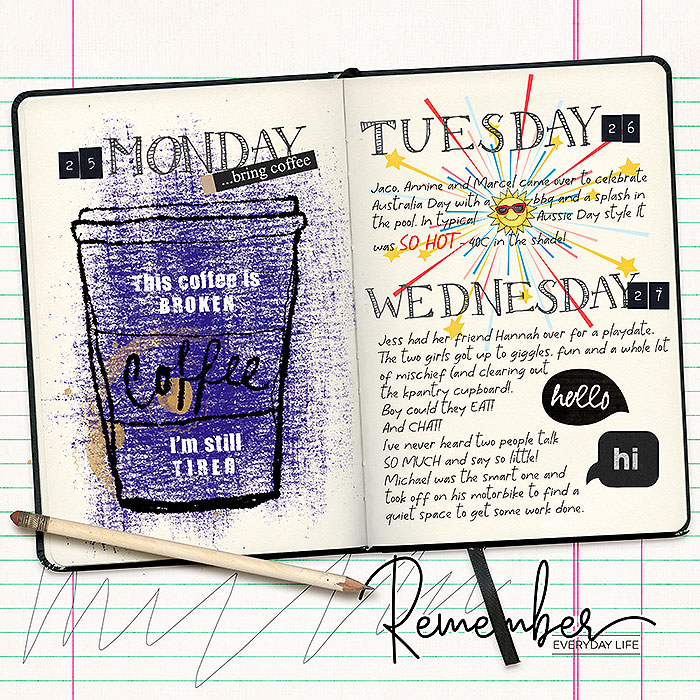 25 MONDAY
...bring coffee
This coffee is
BROKEN
Coffee
I'm still
TIRED
TUESDAY 26
Jaco, Annine and Marcel came over to celebrate
Australia Day with a bbq and a splash in
the pool. In typical Aussie Day style it
was SO HOT - 40C in the shade!
WEDNESDAY 27
Jess had her friend Hannah over for a playdate.
The two girls got up to giggles, fun and a whole lot
of mischief (and clearing out
the kpantry cupboard!.
Boy could they EAT!
And CHAT!
Ive never heard two people talk
SO MUCH and say so little!
Michael was the smart one and
took off on his motorbike to find a
quiet space to get some work done.
hello
hi
Remember
EVERYDAY LIFE